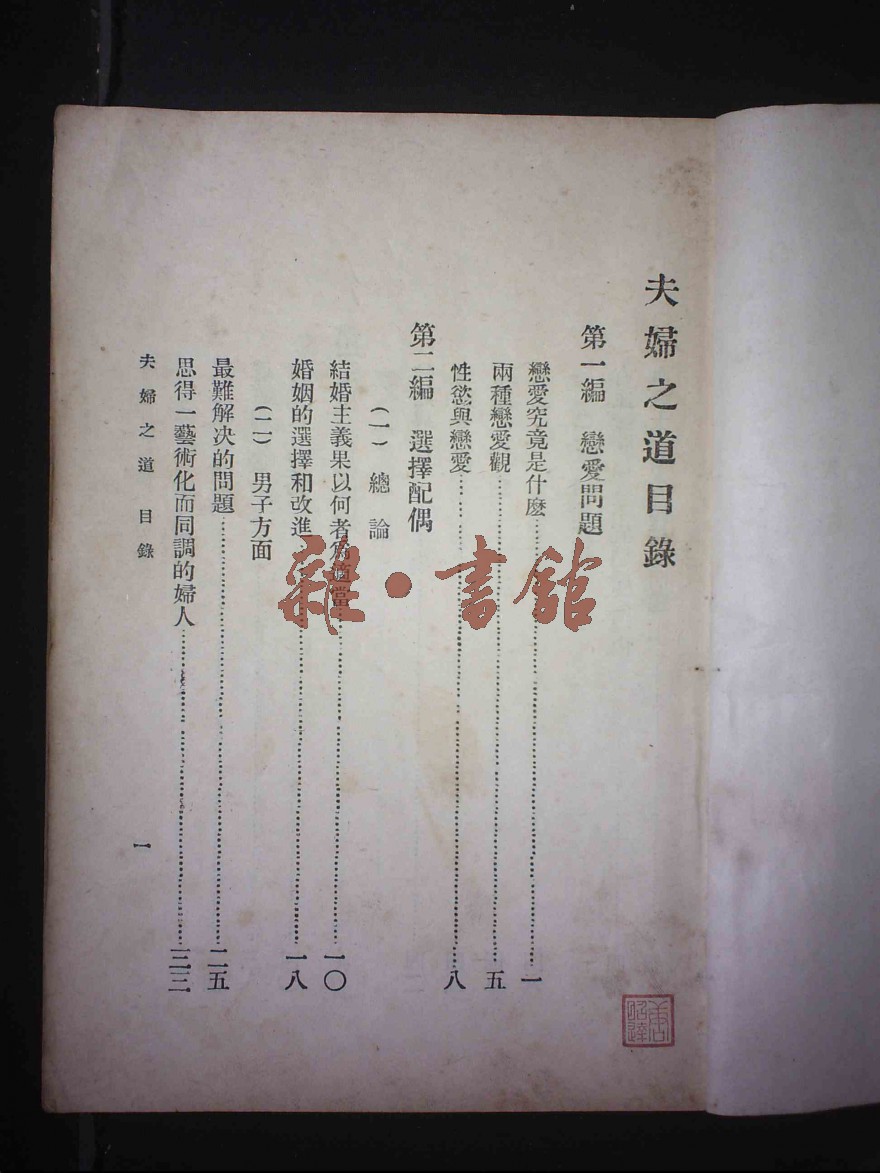 夫婦之道目錄
第一編　戀愛問題
戀愛究竟是什麽……一
兩種戀愛觀……五
性慾與戀愛……八
第二編　選擇配偶
(一)　總論
結婚主義果以何者爲適當……一〇
婚姻的選擇和改進……一八
(二)　男子方面
最難解決的問題……二五
思得一藝術化而同調的婦人……三三
夫婦之道　目錄
一
雜·書館